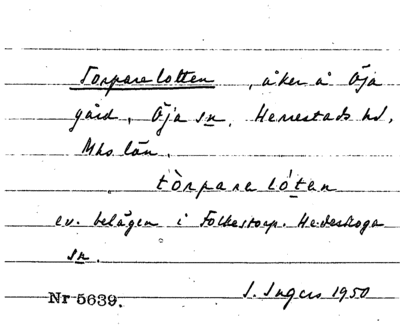 Torparelotten, åker å Öja
gård, Öja sn. Herrestads hd,
Mhs län.
tòrpareló̱tan
ev. belägen i Folkestorp. Hedeskoga
sn.
Nr 5639.
I. Ingers 1950